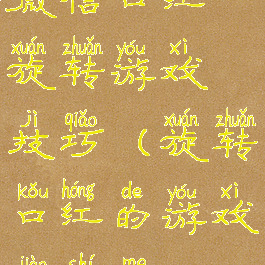 微信口红
xuán zhuǎn yóu xì
旋转游戏
jì qiǎo xuán zhuǎn
技巧（旋转
kǒu hóng de yóu xì
口红的游戏